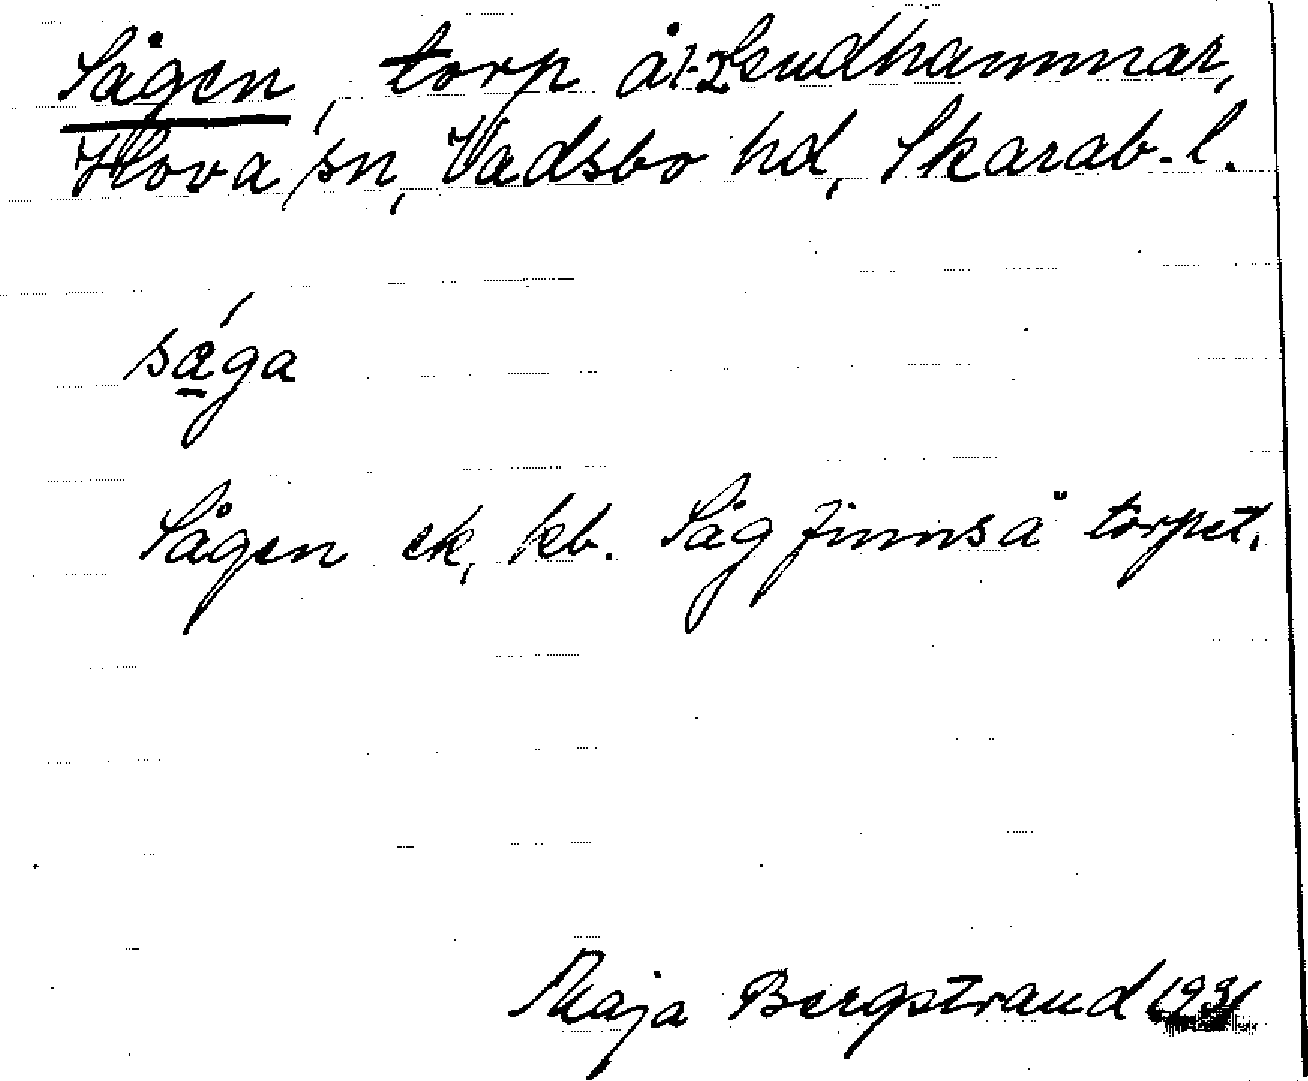 Sågen, torp å 1-2 Gudhammar,
Hova sn, Vadsbo hd, Skarab. l.
sǻga
Sågen ek, kb. Såg finns å torpet.
Maja Bergstrand 1931